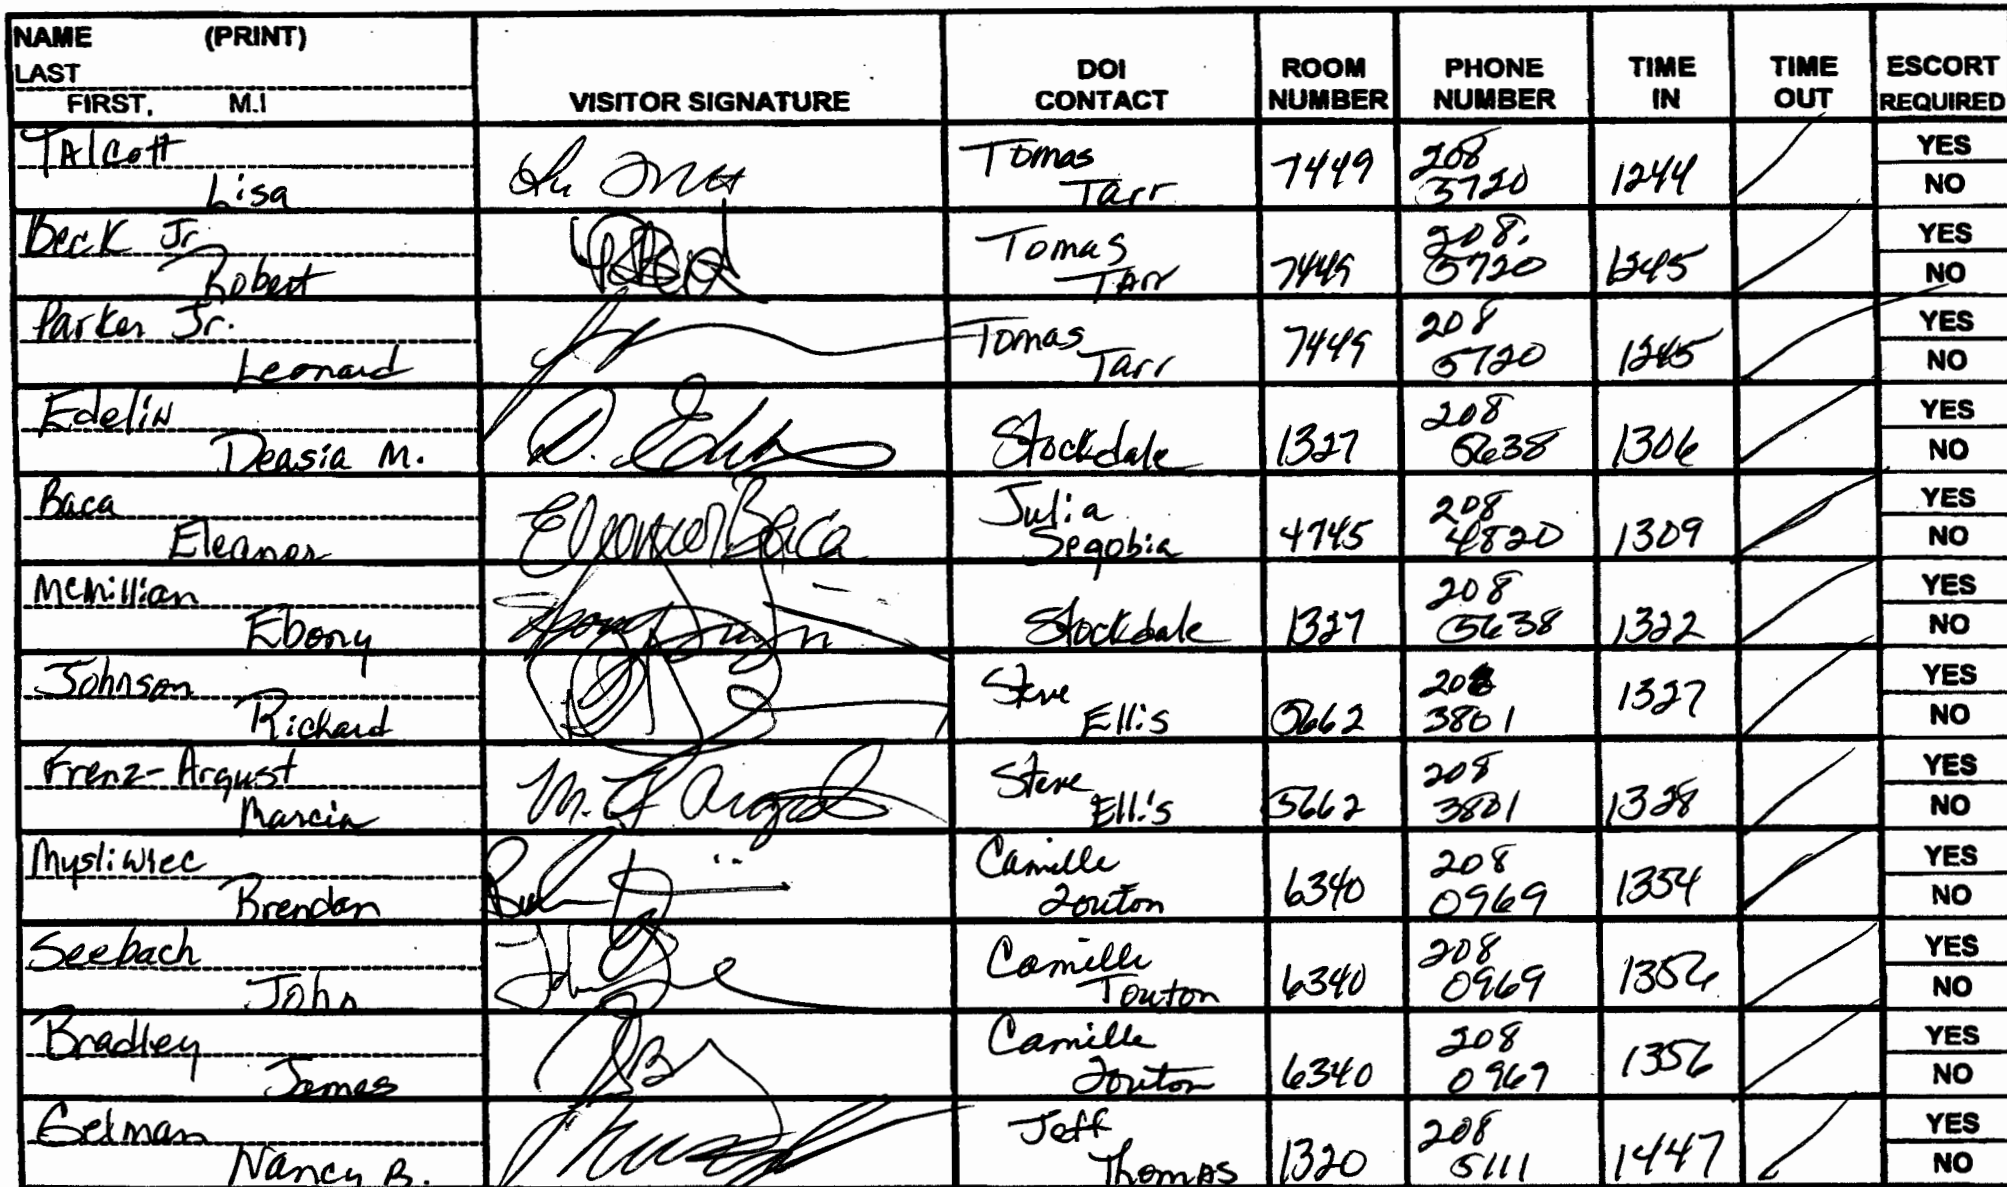 NAME (PRINT)
LAST
FIRST, M.I
VISITOR SIGNATURE
DOI CONTACT
ROOM NUMBER
PHONE NUMBER
TIME IN
TIME OUT
ESCORT REQUIRED
Talcott Lisa Tomas Tarr 7449 208 5720 1244 YES NO
Beck Jr Robert Tomas Tarr 7449 208. 5720 1245 YES NO
Parker Jr. Leonard Tomas Tarr 7449 208 5720 1245 YES NO
Edelin Deasia M. D. Stockdale 1327 208 5638 1306 YES NO
Baca Eleanor Eleanor Baca Julia Segobia 4745 208 4820 1309 YES NO
McMillian Ebony Stockdale 1327 208 5638 1322 YES NO
Johnson Richard Steve Ellis 5662 208 3801 1327 YES NO
Frenz-Argust Marcia M. Steve Ellis 5662 208 3801 1328 YES NO
Mysliwiec Brendan Camille Touton 6340 208 0969 1354 YES NO
Seebach John Camille Touton 6340 208 0969 1356 YES NO
Bradley James JB Camille Touton 6340 208 0969 1356 YES NO
Gelman Nancy B. Jeff Thomas 1320 208 5111 1447 YES NO